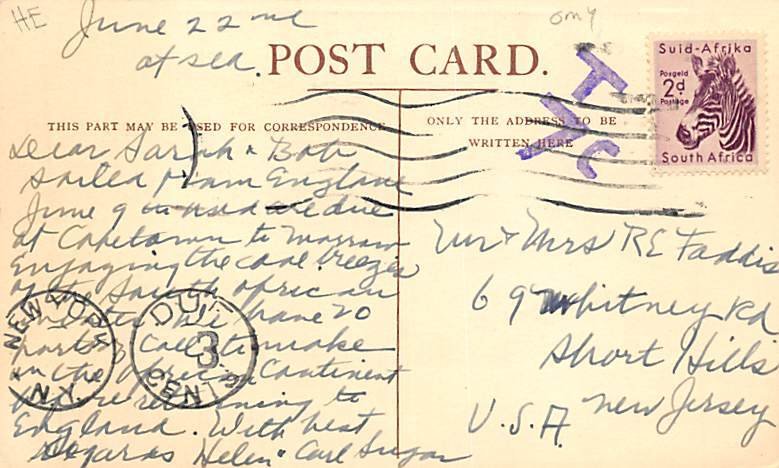 HE
June 22nd
at sea.
POST CARD.
THIS PART MAY BE USED FOR CORRESPONDENCE
ONLY THE ADDRESS TO BE
WRITTEN HERE
Suid-Afrika
Posgeld
2d
Postage
South Africa
T
Dear Sarah & Bob
Sailed from England
June 9 and are due
at Capetown to morrow
Enjoying the cool breezes
of the South African
have 20
ports of call to make
on the African Continent
returning to
England. With best
Regards Helen & Carl
Mr & Mrs R E Faddis
69 Whitney Rd
Short Hills
New Jersey
U.S.A.
NEW YORK
N.Y.
DUE
3
CENTS